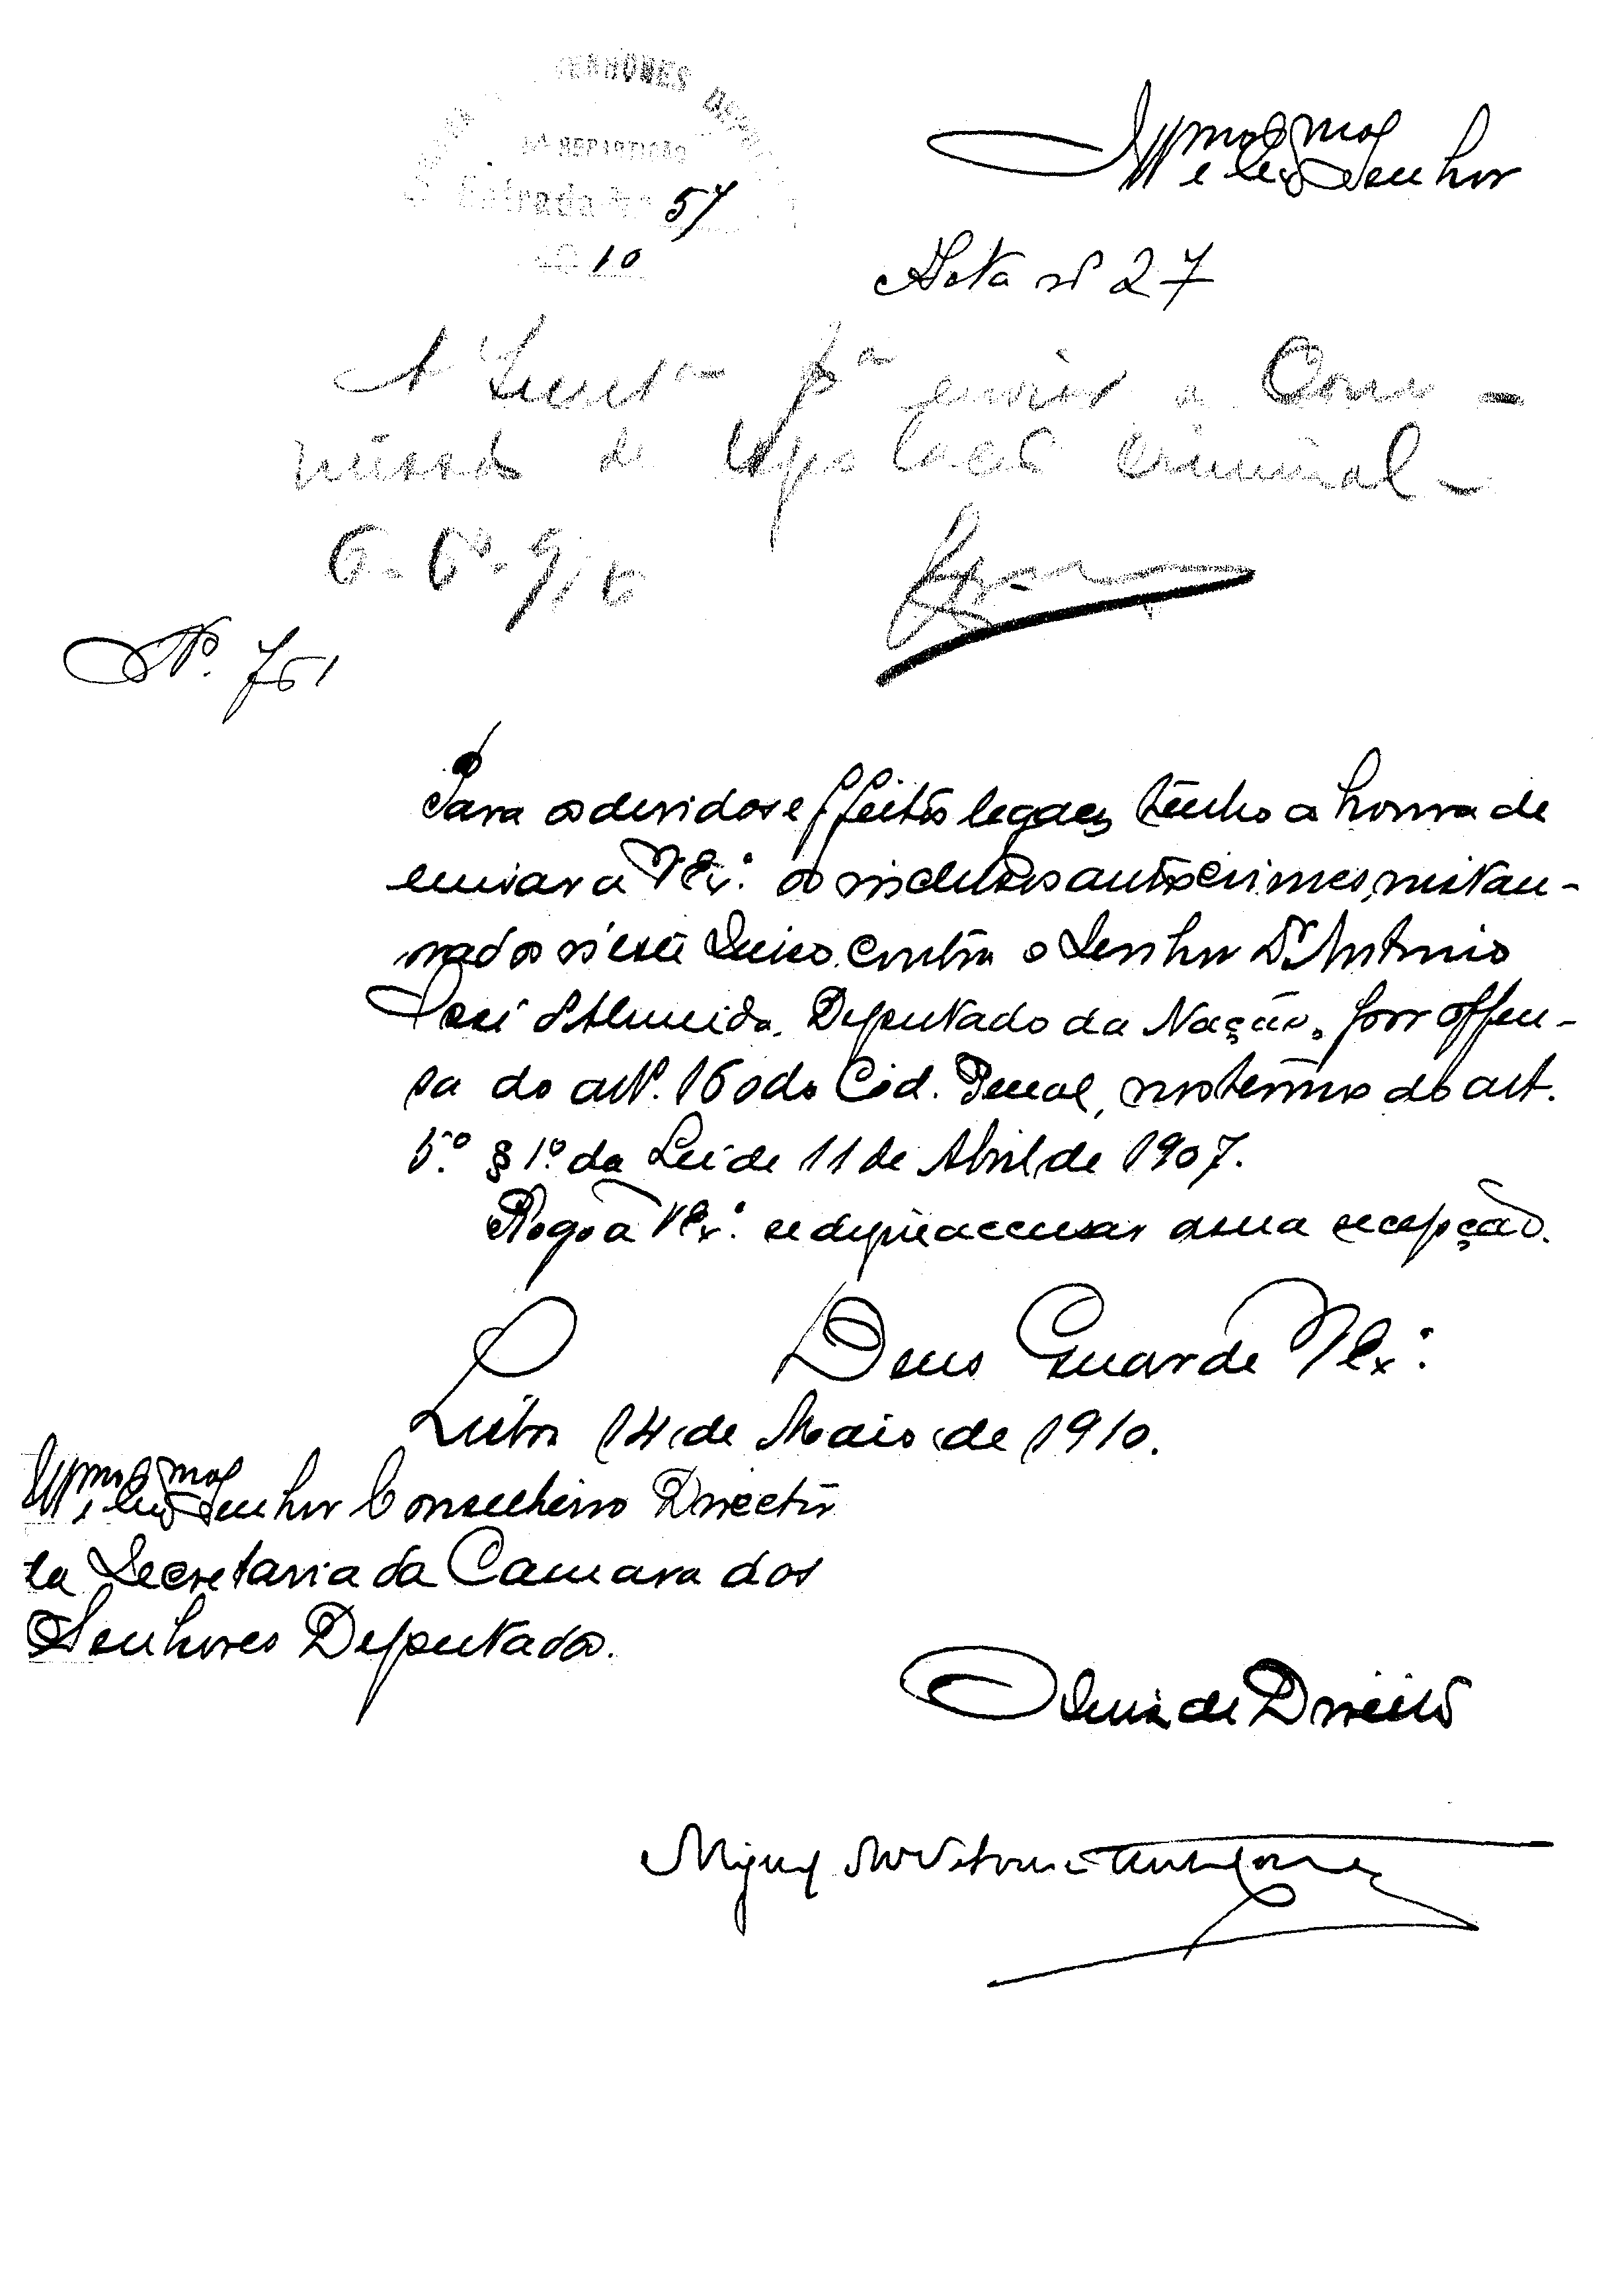 SENHORES DEPU
REPARTIÇÃO
Entrada Nº 57
10
Illmo e Exmo Senhor
Acta nº 27
A Secretª pª enviar a Com-
missão de legislação criminal -
6 - 6º - 910
Nº. 751
Para os devidos effeitos legaes, tenho a honra de
enviar a V. Exª. os inclusos autos crimes, instau-
rados n'este Juizo contra o Senhor Dr. Antonio
José d'Almeida, Deputado da Nação, por offen-
sa do artº. 160 do Cod. Penal, nos termos do art.
5.º § 1º. da Lei de 11 de Abril de 1907.
Rogo a V. Exª. se digne accusar a sua recepção.
Deus Guarde V. Exª.
Lisboa 14 de Maio de 1910.
Illmo e Exmo Senhor Conselheiro Director
da Secretaria da Camara dos
Senhores Deputados.
O Juiz de Direito
Miguel